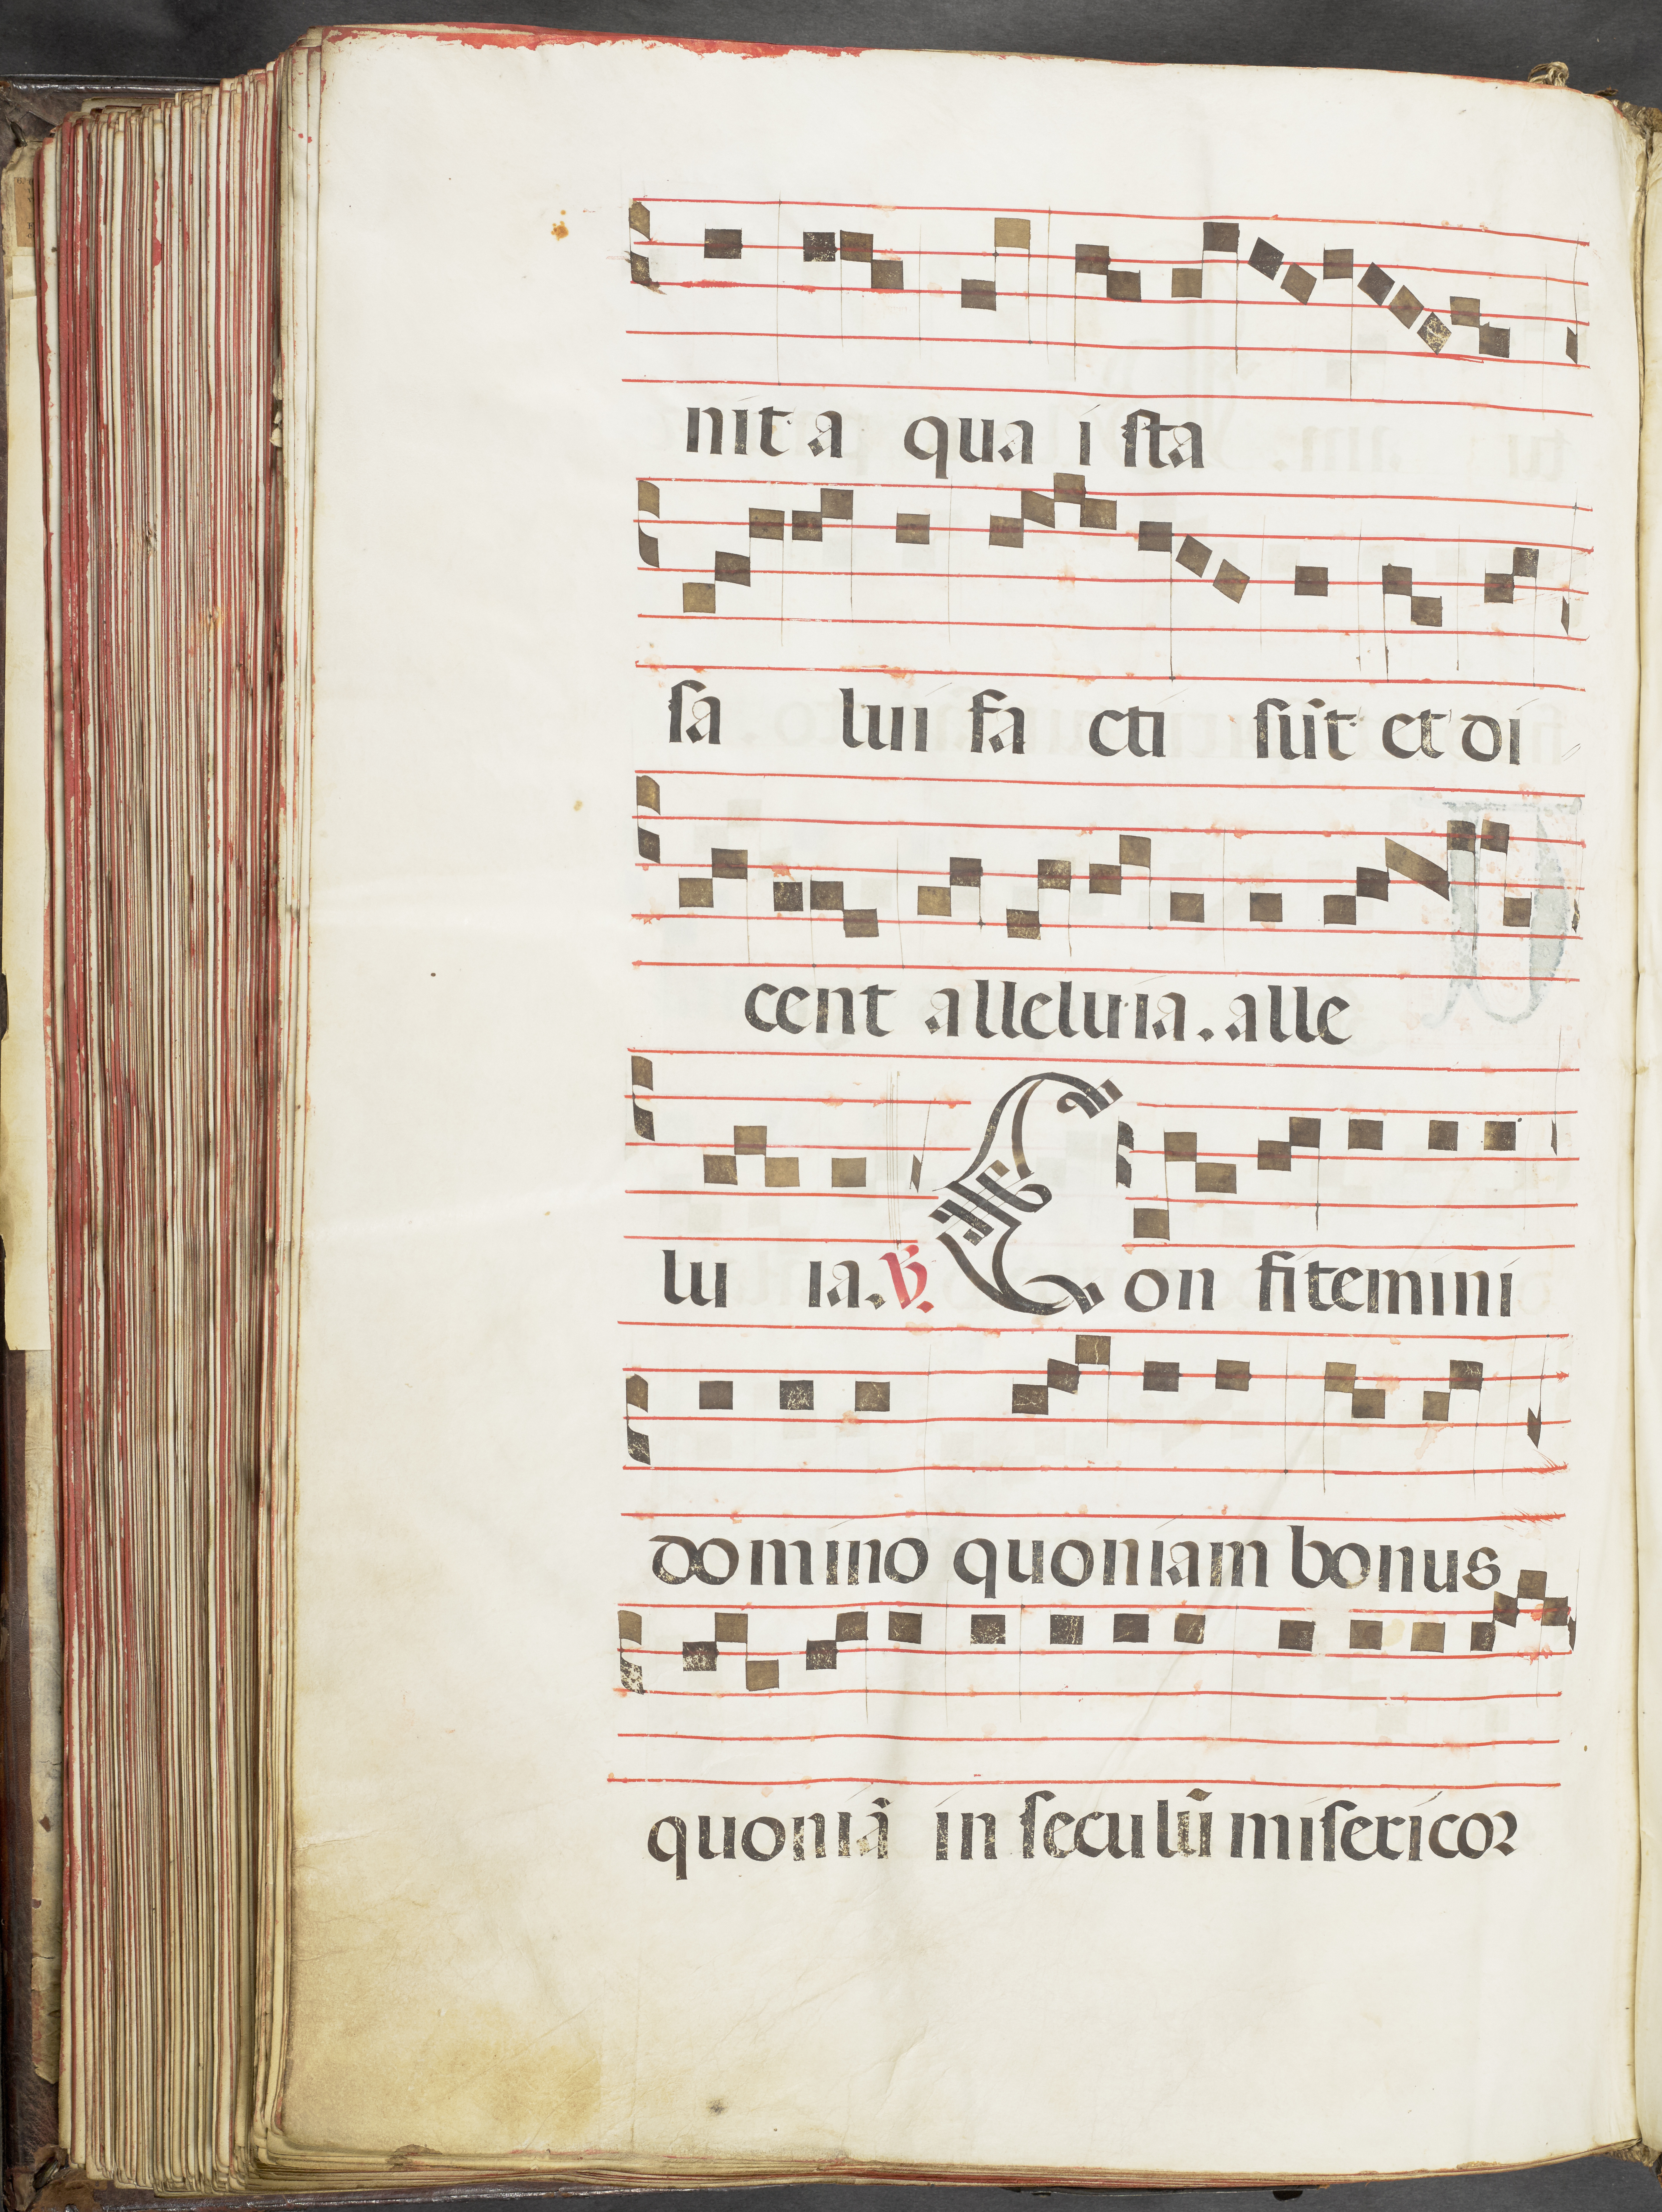 nit a qua i sta
sa lui fa cti sūt et di
cent alleluia. alle
lu ia. ℣. Con fitemini
domino quoniam bonus
quoniā in seculū misericor